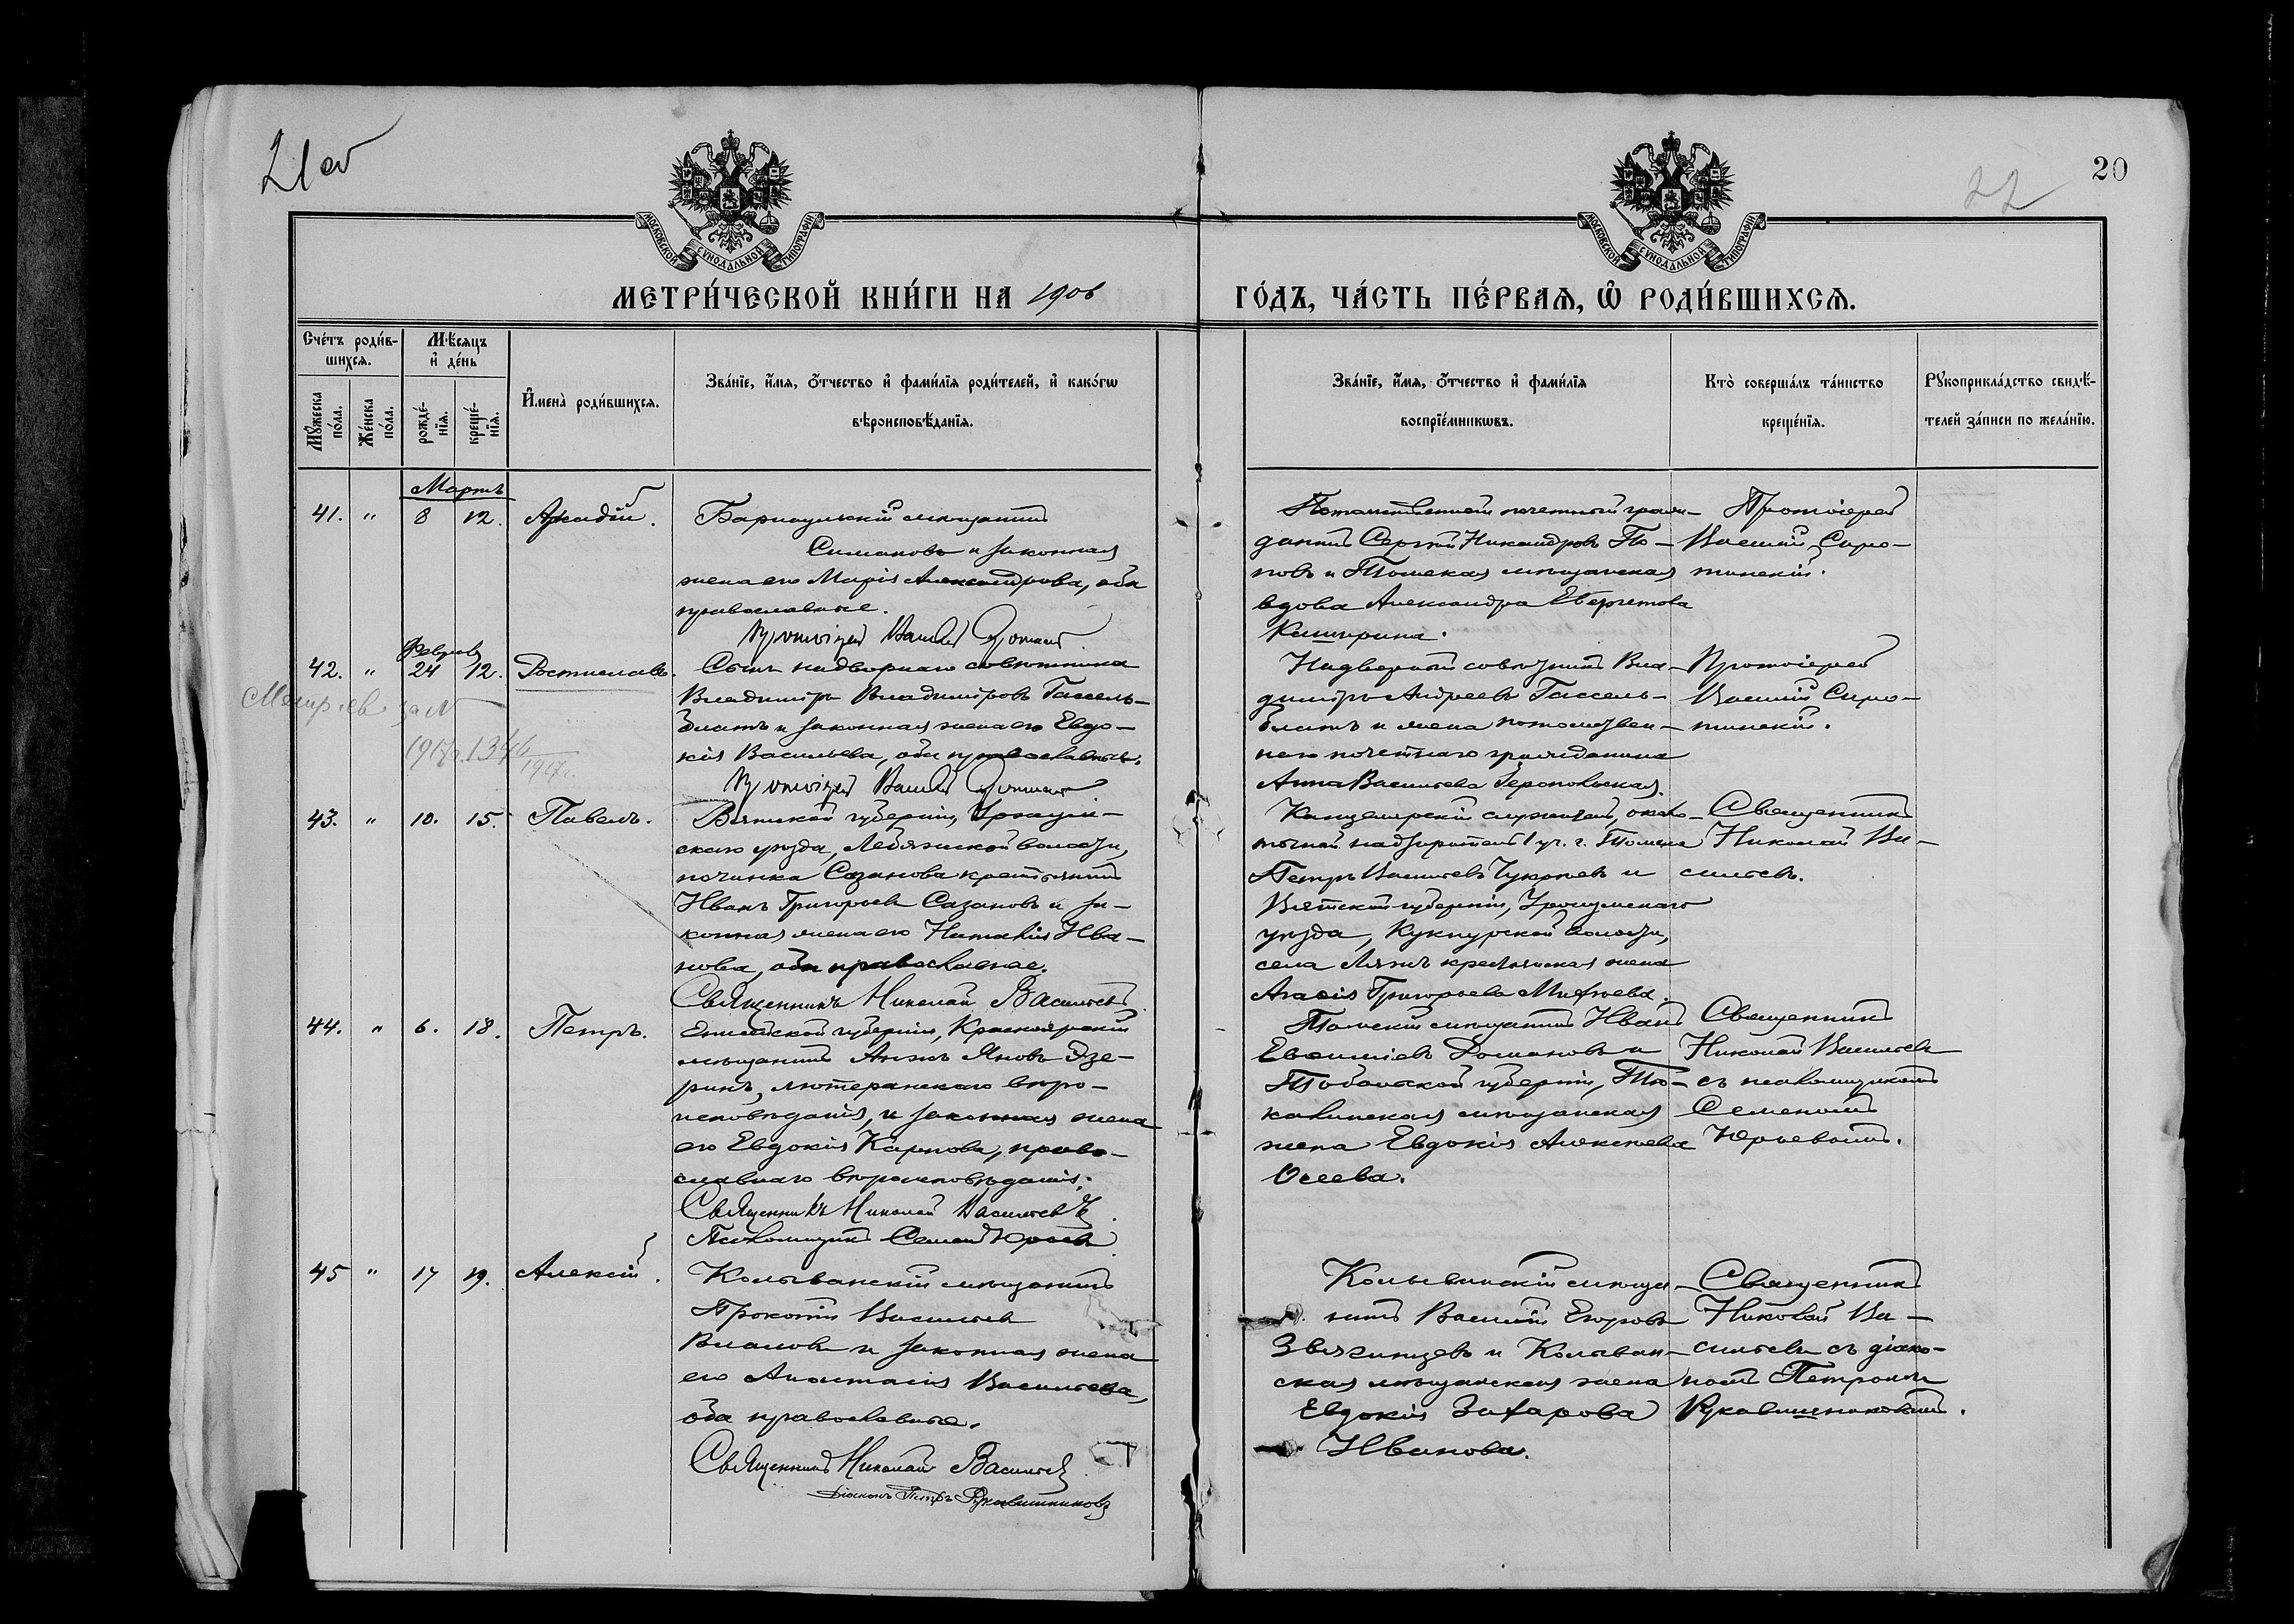 21 об
22
20
МОСКОВСКОЙ СѴНОДАЛЬНОЙ ТИПОГРАФІИ
МОСКОВСКОЙ СѴНОДАЛЬНОЙ ТИПОГРАФІИ
МЕТРИ́ЧЕСКОЙ КНИ́ГИ НА 1906
ГО́ДЪ, ЧА́СТЬ ПЕ́РВАѦ, Ѡ РОДИ́ВШИХСѦ.
Сче́тъ роди́в-
шихсѧ.
Мꙋ́жеска по́ла.
Же́нска по́ла.
Мѣ́сѧцъ и де́нь
рожде́-
нїѧ.
креще́-
нїѧ.
И҆мена̀ роди́вшихсѧ.
Зва́нїе, и҆́мѧ, ѻ҆́тчество и҆ фами́лїѧ роди́телей, и҆ како́гѡ
вѣроисповѣ́данїѧ.
Зва́нїе, и҆́мѧ, ѻ҆́тчество и҆ фами́лїѧ
воспрїе́мникѡвъ.
Кто̀ соверша́лъ та́инство
креще́нїѧ.
Рꙋкоприкла́дство свидѣ́-
телей за́писи по жела́нїю.
Мартъ
41. " 8 12. Аркадій.
Барнаульскій мѣщанинъ
Симановъ и законная
жена его Марія Александрова, оба
православные.
Протоіерей Василій
Потомственный почетный граж-
данинъ Сергѣй Никандровъ По-
повъ и Томская мѣщанская
вдова Александра Евергетова
Каширина.
Протоіерей
Василій Сиро-
тинскій.
Февраль
42. " 24 12. Ростиславъ.
1917г.
Сынъ надворнаго совѣтника
Владиміръ Владиміровъ Гассель-
блатъ и законная жена его Евдо-
кія Васильева, оба православные.
Протоіерей Василій
Надворный совѣтникъ Вла-
диміръ Андреевъ Гассель-
блатъ и жена потомствен-
наго почетнаго гражданина
Анна Васильева
Протоіерей
Василій Сиро-
тинскій.
43. " 10. 15. Павелъ.
Вятской губерніи, Уржум-
скаго уѣзда, Лебяжской волости,
починка Сазанова крестьянинъ
Иванъ Григорьевъ Сазановъ и за-
конная жена его Наталія Ива-
нова, оба православные.
Священникъ Николай Васильевъ.
Канцелярскій служитель, около-
точный надзиратель 1 уч. г. Томска
Петръ Васильевъ и
Вятской губерніи, Уржумскаго
уѣзда, Кукнурской волости,
села крестьянская жена
Агафія Григорьева
Священникъ
Николай Ва-
сильевъ.
44. " 6. 18. Петръ.
Енисейской губерніи, Красноярскій
мѣщанинъ Яновъ Дзе-
ринъ, лютеранскаго вѣро-
исповѣданія, и законная жена
его Евдокія Карпова, право-
славнаго вѣроисповѣданія.
Священникъ Николай Васильевъ.
Псаломщикъ Семенъ Юрьевъ.
Томскій мѣщанинъ Иванъ
Романовъ и
Тобольской губерніи, Тю-
калинская мѣщанская
жена Евдокія Алексѣева
Осеева.
Священникъ
Николай Васильевъ
съ псаломщикомъ
Семеномъ
Юрьевымъ.
45 " 17 19. Алексій.
Колыванскій мѣщанинъ
Прокопій Васильевъ
Власовъ и законная жена
его Анастасія Васильева,
оба православные.
Священникъ Николай Васильевъ
Діаконъ Петръ Рукавишниковъ
Колыванскій мѣща-
нинъ Василій Егоровъ
Звягинцевъ и Колыван-
ская мѣщанская жена
Евдокія Захарова
Иванова.
Священникъ
Николай Ва-
сильевъ съ діако-
номъ Петромъ
Рукавишниковымъ.